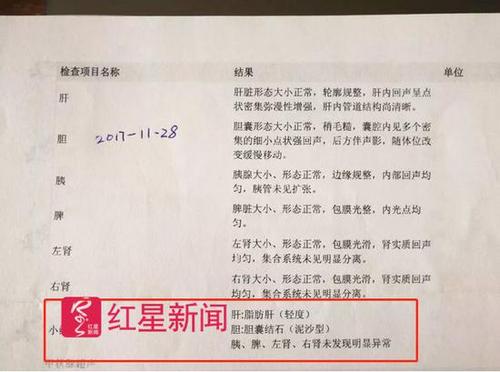 检查项目名称 结果 单位
肝 肝脏形态大小正常，轮廓规整，肝内回声呈点
状密集弥漫性增强，肝内管道结构尚清晰。
胆 2017-11-28 胆囊形态大小正常，稍毛糙，囊腔内见多个密
集的细小点状强回声，后方伴声影，随体位改
变缓慢移动。
胰 胰腺大小、形态正常，边缘规整，内部回声均
匀，胰管未见扩张。
脾 脾脏大小、形态正常，包膜光整，内光点均
匀。
左肾 左肾大小、形态正常，包膜光滑，肾实质回声
均匀，集合系统未见明显分离。
右肾 右肾大小、形态正常，包膜光滑，肾实质回声
均匀，集合系统未见明显分离。
小 肝:脂肪肝（轻度）
红星新闻 红星新闻 胆:胆囊结石（泥沙型）
胰、脾、左肾、右肾未发现明显异常